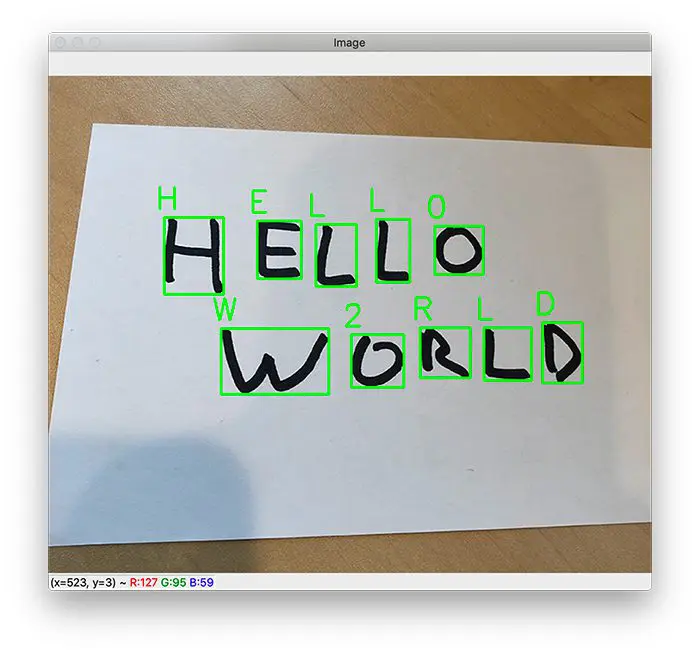 Image
H E L L O
HELLO
W 2 R L D
WORLD
(x=523, y=3) ~ R:127 G:95 B:59